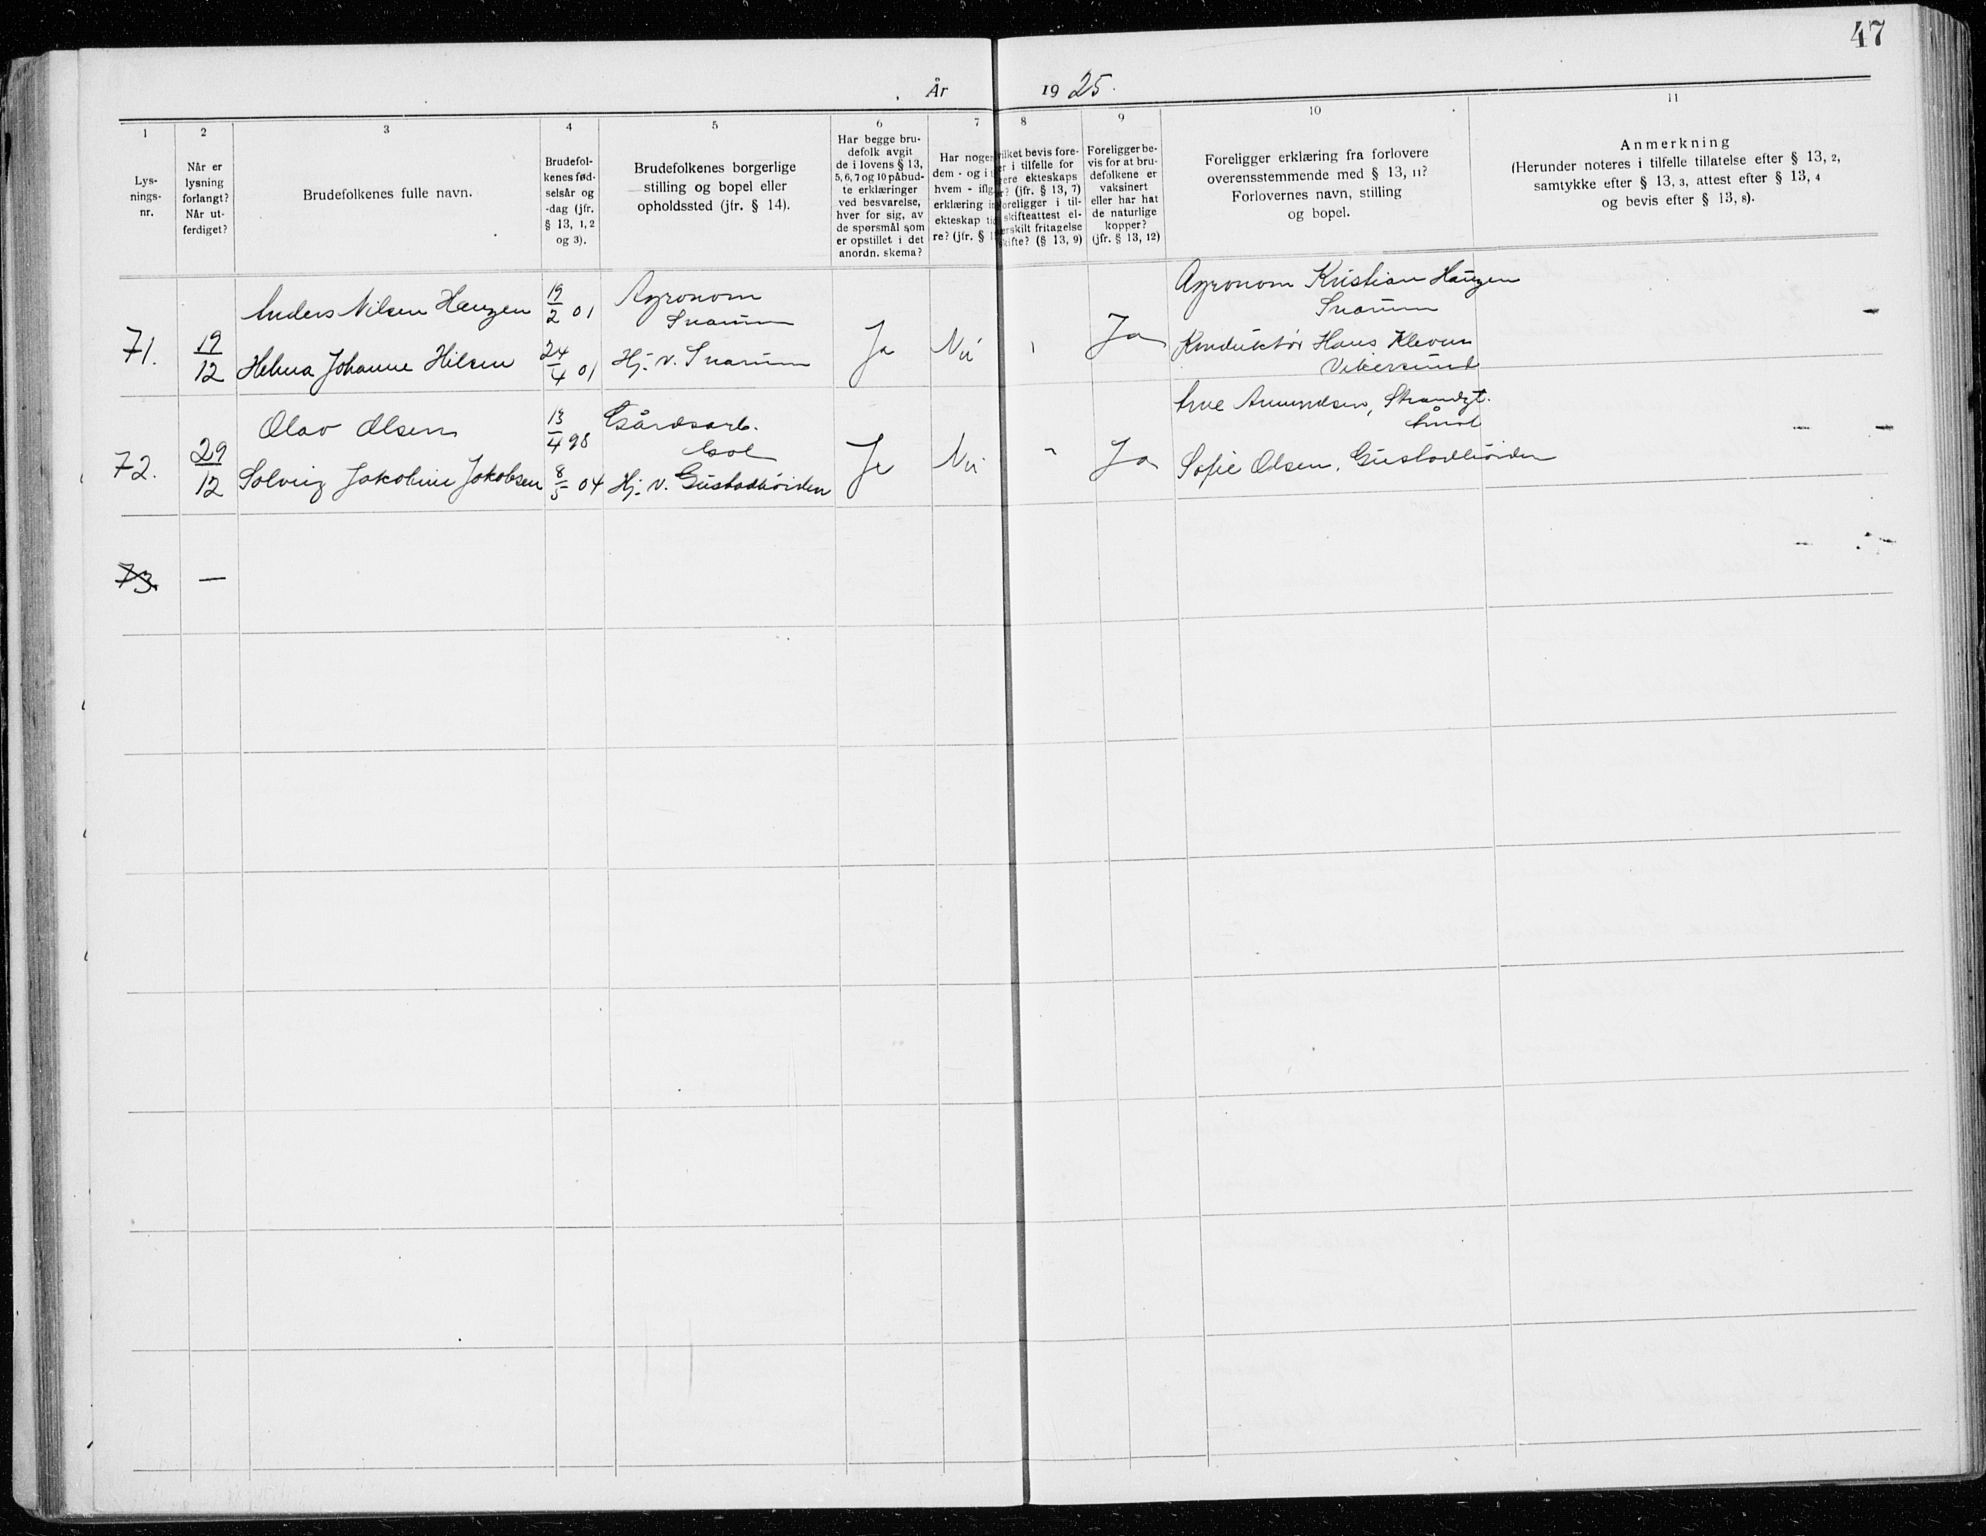 47
År 1925.
1 2 3 4 5 6 7 8 9 10 11
Lys-
nings-
nr.
Når er
lysning
forlangt?
Når ut-
ferdiget?
Brudefolkenes fulle navn.
Brudefol-
kenes fød-
selsår og
-dag (jfr.
§ 13, 1, 2
og 3).
Brudefolkenes borgerlige
stilling og bopel eller
opholdssted (jfr. § 14).
Har begge bru-
defolk avgit
de i lovens § 13,
5, 6, 7 og 10 påbud-
te erklæringer
ved besvarelse,
hver for sig, av
de spørsmål som
er opstillet i det
anordn. skema?
Har nogen
dem - og i t
hvem - iflg
erklæring in
ekteskap tid
re? (jfr. § 1
ilket bevis fore-
er i tilfelle for
ere ekteskaps
r? (jfr. § 13, 7)
oreligger i til-
skifteattest el-
erskilt fritagelse
skifte? (§ 13, 9)
Foreligger be-
vis for at bru-
defolkene er
vaksinert
eller har hat
de naturlige
kopper?
(jfr. § 13, 12)
Foreligger erklæring fra forlovere
overensstemmende med § 13, 11?
Forlovernes navn, stilling
og bopel.
Anmerkning
(Herunder noteres i tilfelle tillatelse efter § 13, 2,
samtykke efter § 13, 3, attest efter § 13, 4
og bevis efter § 13, 8).
71. 19/12
Anders Nilsen Haugen 19/2 01 Agronom
Snarum
Helma Johanne Hilsen 24/4 01 Hj. v. Snarum
Ja Nei Ja
Agronom Kristian Haugen
Snarum
Konduktør Hans Kleven
Vikersund
72. 29/12
Olav Olsen 13/4 98 Gårdsarb.
Gol
Solveig Jakobine Jakobsen 8/5 04 Hj. v. Gustadhøiden
Ja Nei " Ja
Arne Amundsen, Strandgt.
Åmot
Sofie Olsen, Gustadhøiden
73. —